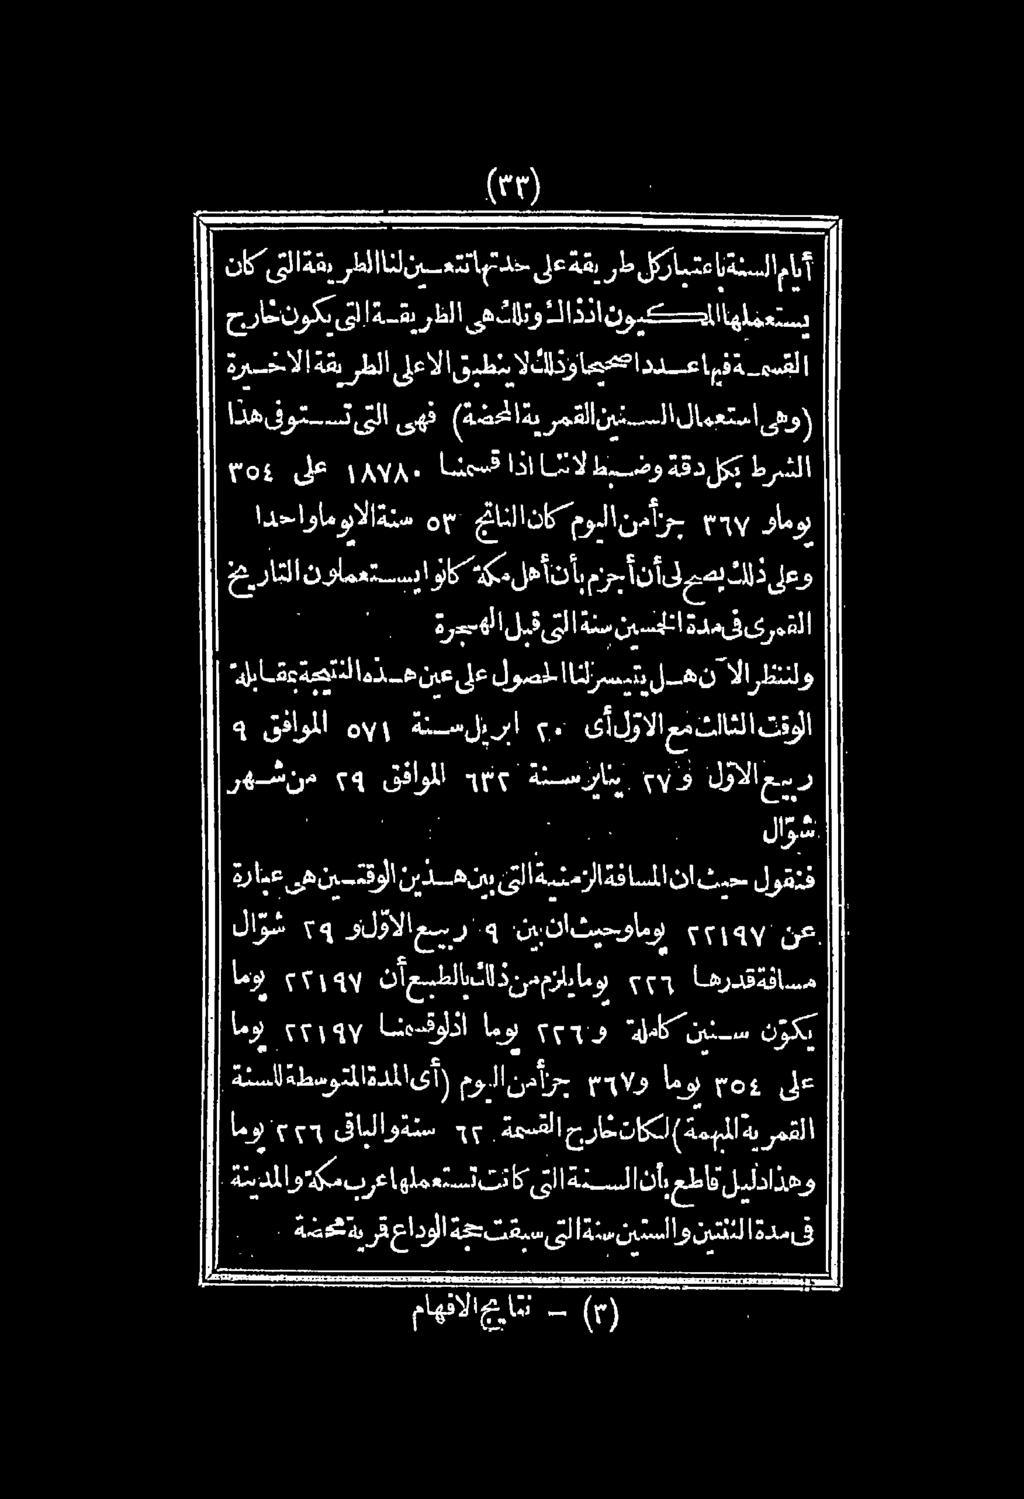 (٣٣)
أيام السنة باعتبار كل طريقة على حدتها تتعين لنا الطريقة التى كان
يستعملها المكيون اذ ذاك وتلك هى الطريقة التى يكون خارج
القسمة فيها عددا صحيحا وذلك لا ينطبق الا على الطريقة الاخيرة
(وهى استعمال السنين القمرية المحضة) فهى التى تستوفى هذا
الشرط بكل دقة وضبط لاننا اذا قسمنا ١٨٧٨٠ على ٣٥٤
يوما و ٣٦٧ جزأ من اليوم كان الناتج ٥٣ سنة الا يوما واحدا
وعلى ذلك يصح لى أن أجزم بأن أهل مكة كانوا يستعملون التاريخ
القمرى فى مدة الخمسين سنة التى قبل الهجرة
ولننظر الآن هل يتيسر لنا الحصول على عين هذه النتيجة بمقابلة
الوقت الثالث مع الاوّل أى ٢٠ ابريل سنة ٥٧١ الموافق ٩
ربيع الاوّل و ٢٧ يناير سنة ٦٣٢ الموافق ٢٩ من شهر
شوّال
فنقول حيث ان المسافة الزمنية التى بين هذين الوقتين هى عبارة
عن ٢٢١٩٧ يوما وحيث ان بين ٩ ربيع الاوّل و ٢٩ شوّال
مسافة قدرها ٢٢٦ يوما يلزم من ذلك بالطبع أن ٢٢١٩٧ يوما
يكوّن سنين كاملة و ٢٢٦ يوما اذ لو قسمنا ٢٢١٩٧ يوما
على ٣٥٤ يوما و ٣٦٧ جزأ من اليوم (أى المدة المتوسطة للسنة
القمرية المبهمة) لكان خارج القسمة ٦٢ سنة والباقى ٢٢٦ يوما
وهذا دليل قاطع بأن السنة التى كانت تستعملها عرب مكة والمدينة
فى مدة الثنتين والستين سنة التى سبقت حجة الوداع قرية محضة
(٣) — نتايج الافهام